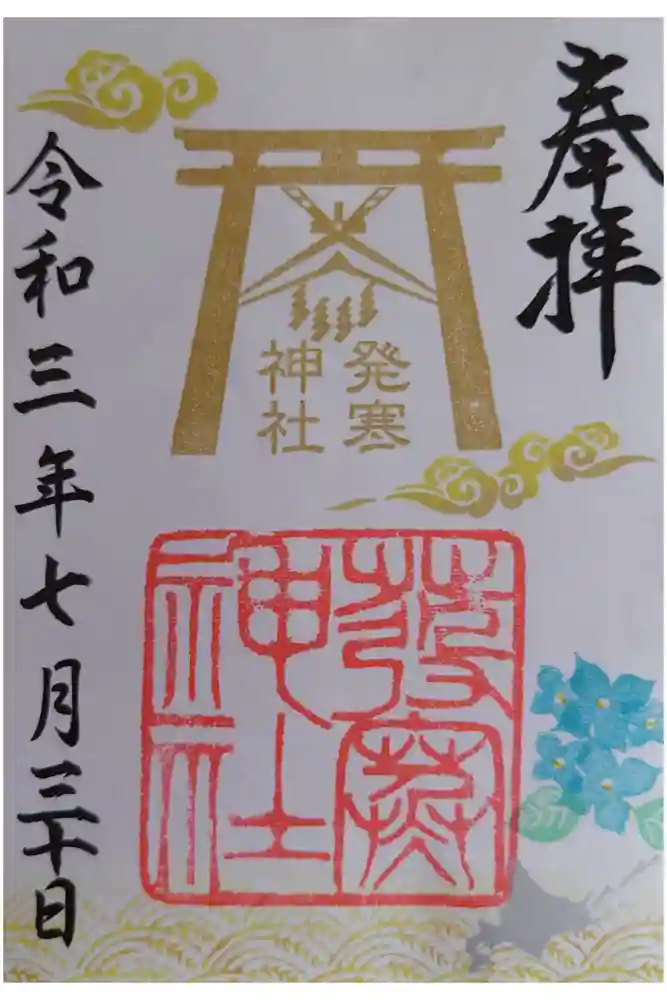 奉拝
発寒
神社
發寒
神社
令和三年七月三十日